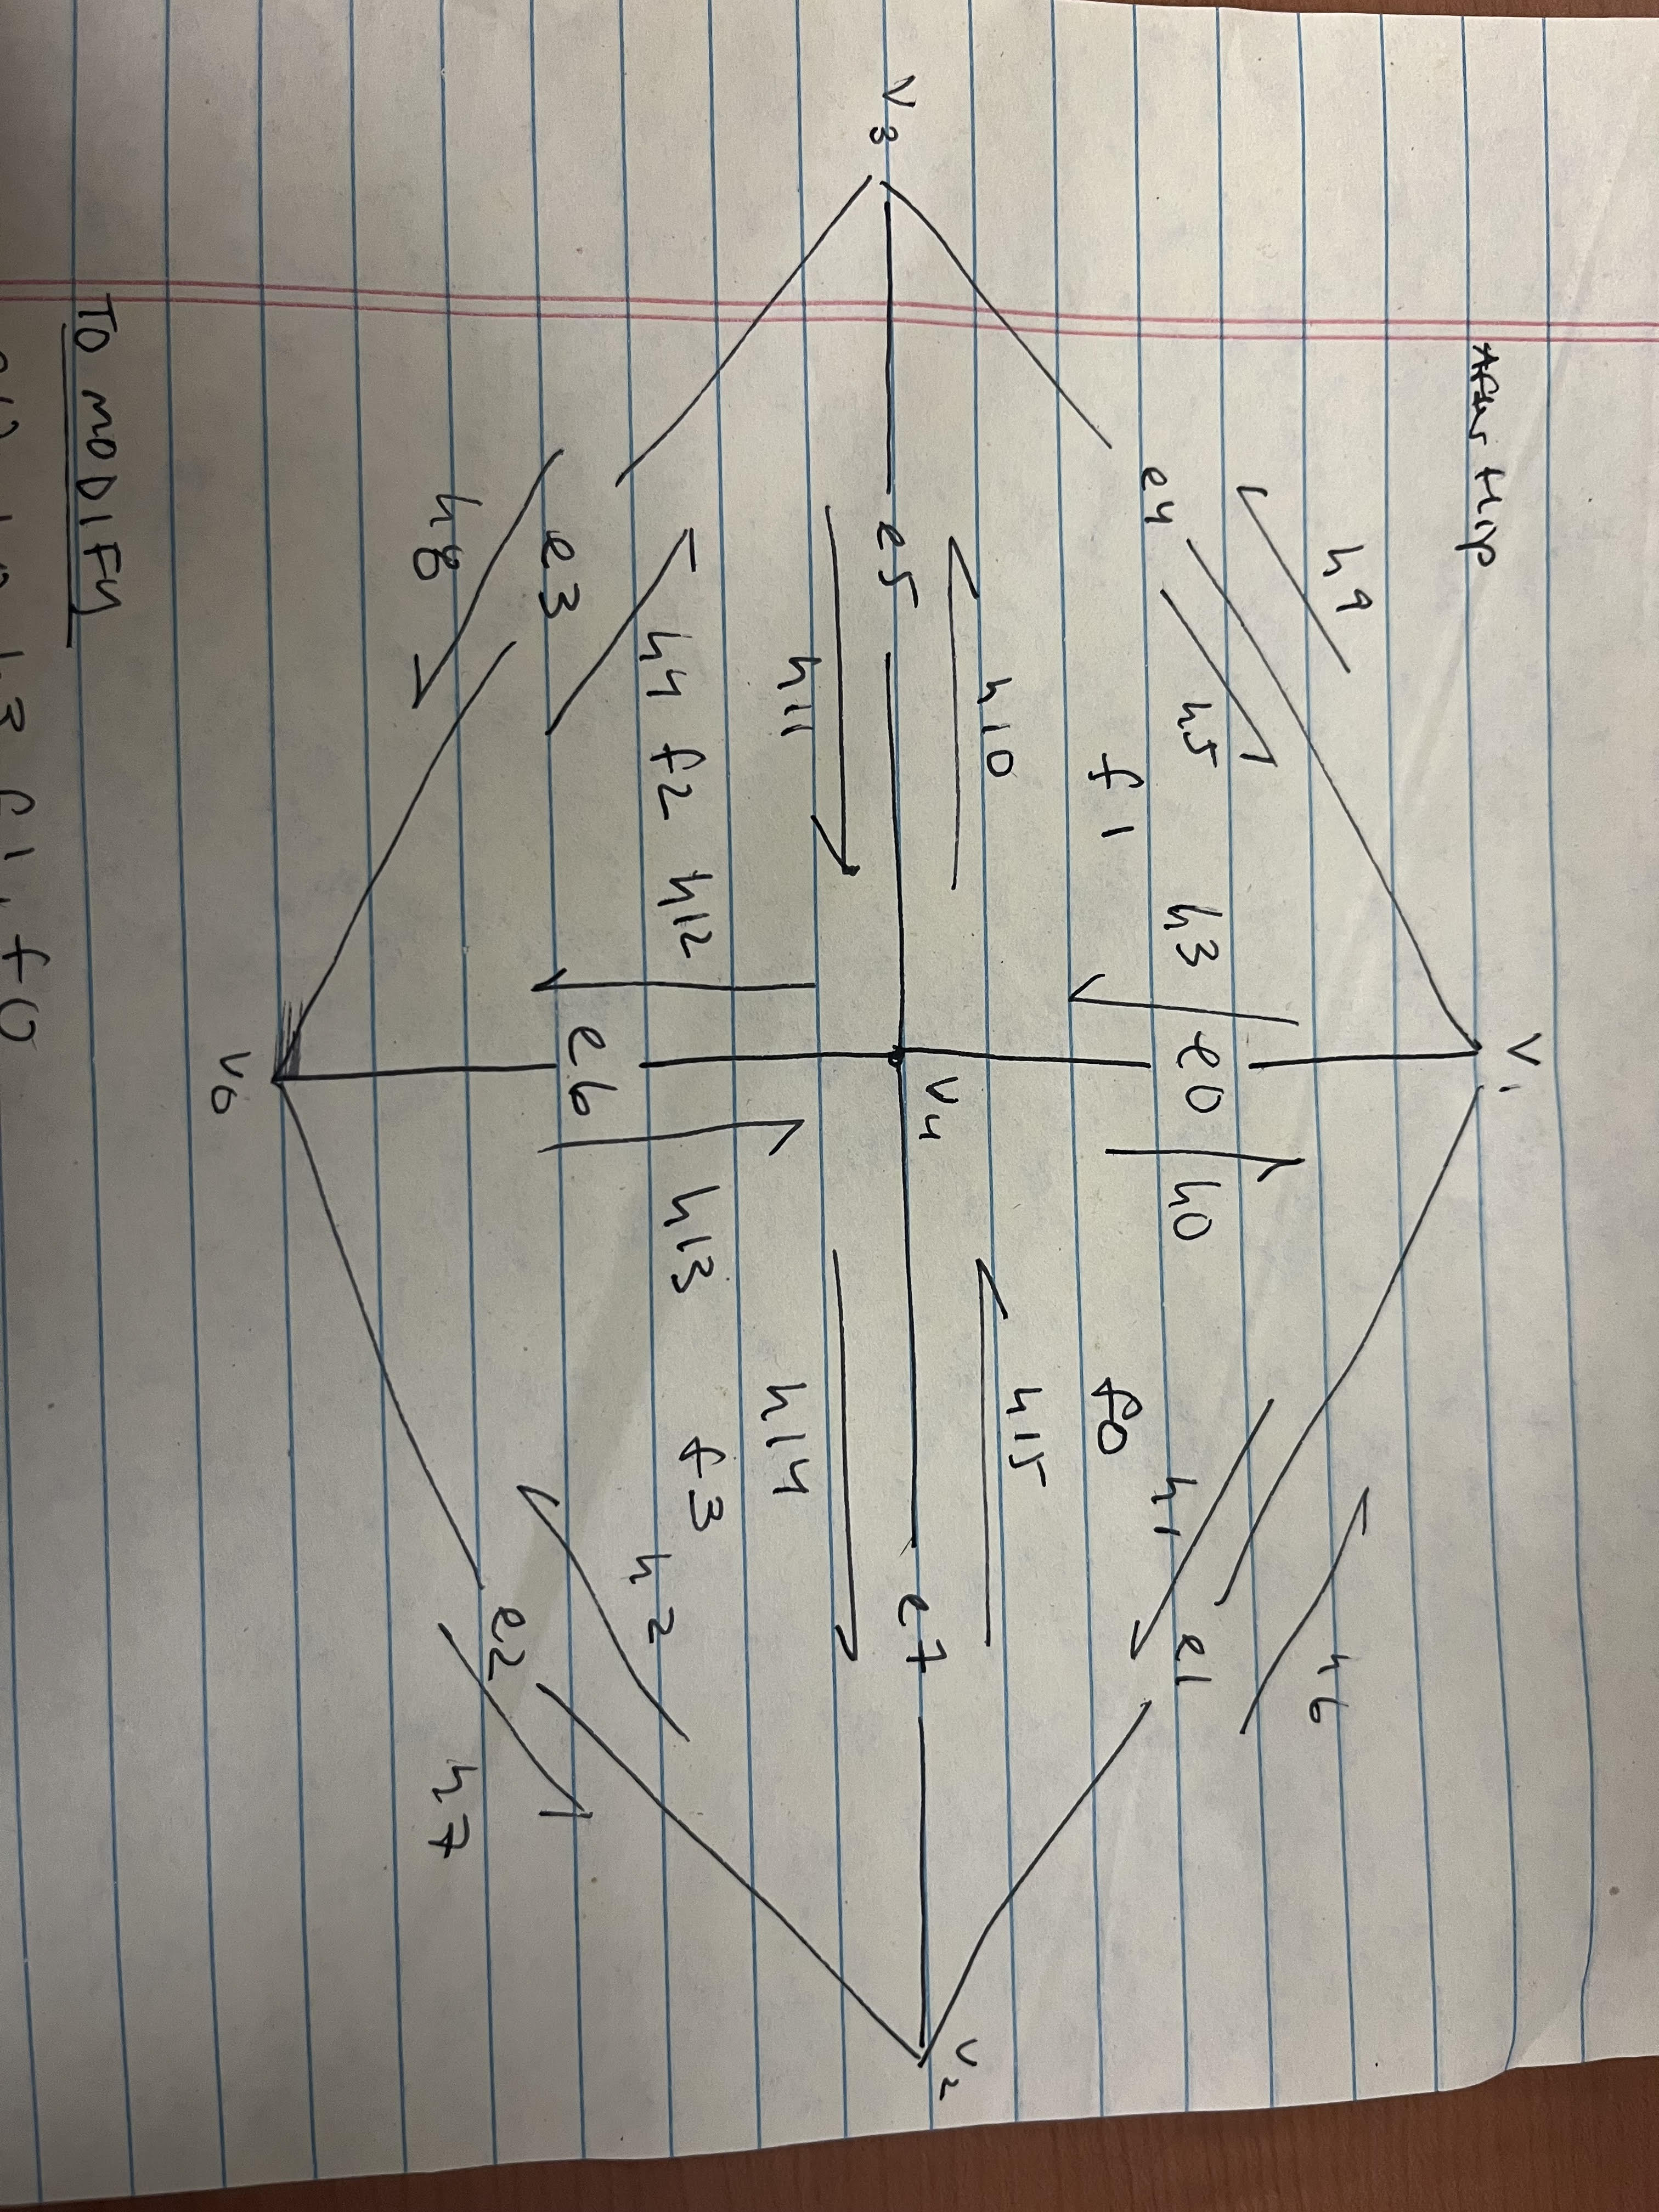 V1
After flip
h9
h6
h5
h3
e0
h0
e1
h1
e4
f1
f0
h15
h10
V4
V2
V3
e5
e7
h11
h14
h4
f2
h12
h13
f3
h2
e6
e3
e2
h8
h7
V0
TO MODIFY
h3 f1, f0